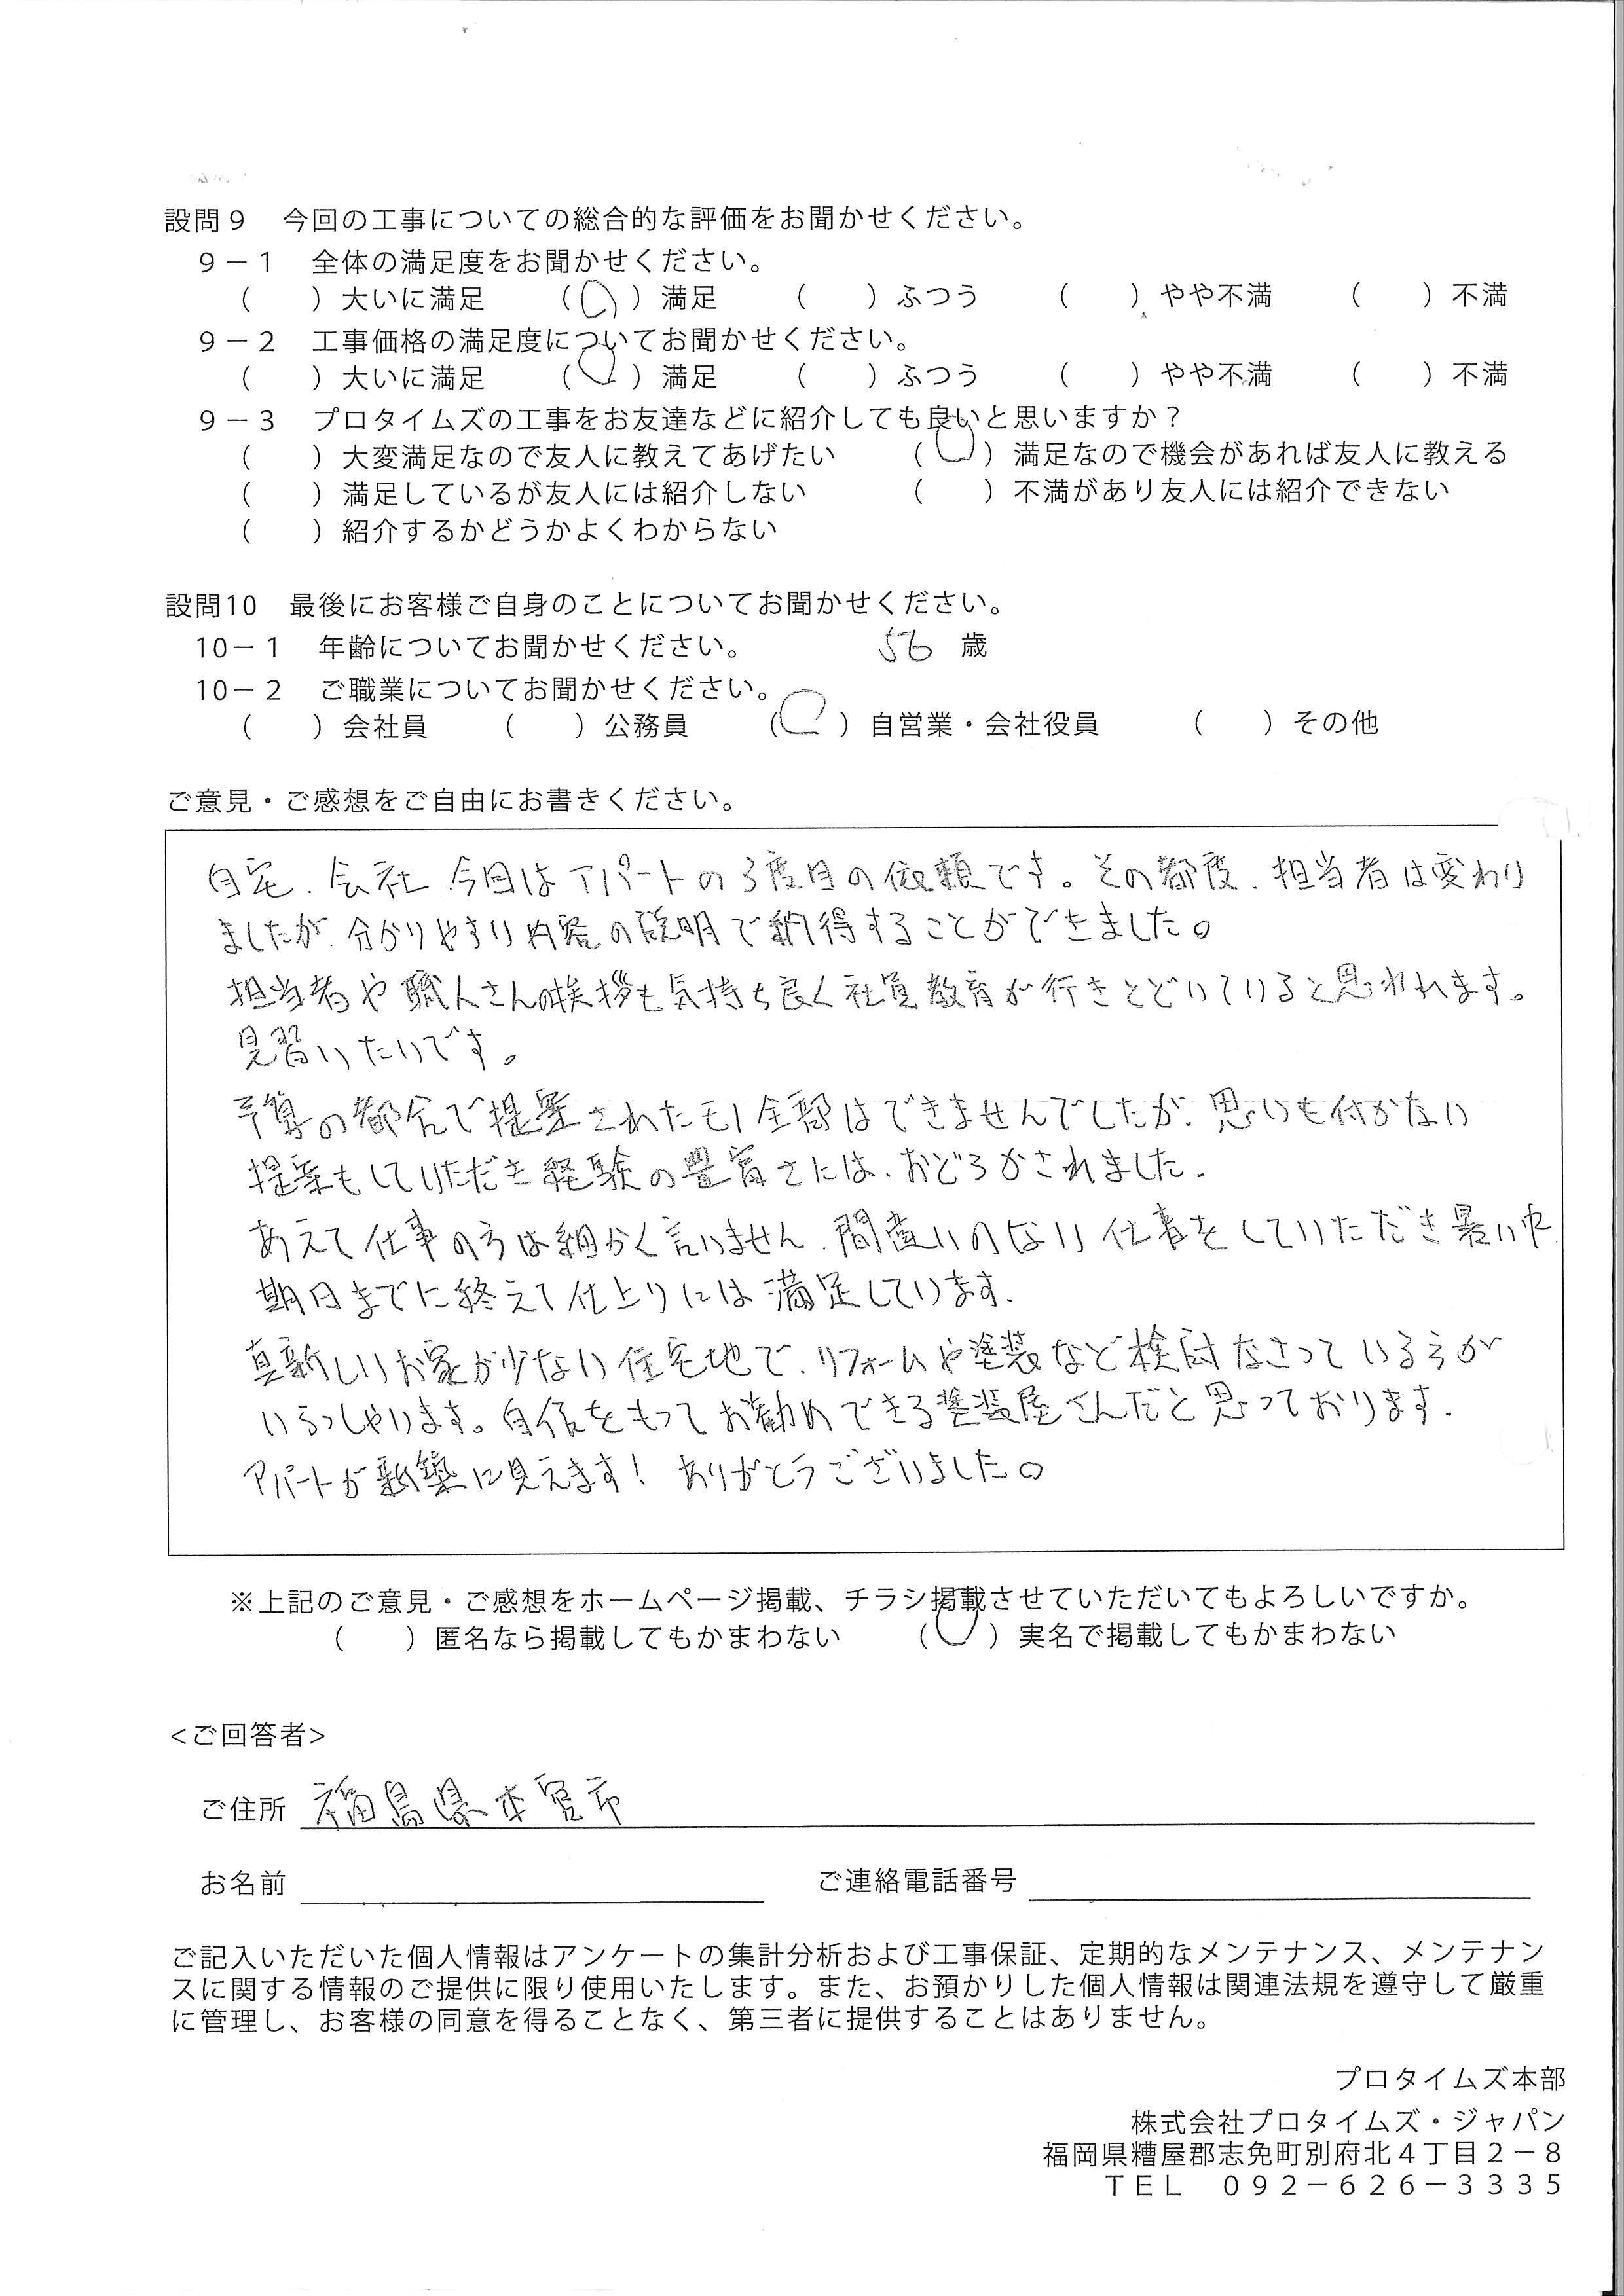 設問9　今回の工事についての総合的な評価をお聞かせください。
9－1　全体の満足度をお聞かせください。
（　）大いに満足　（○）満足　（　）ふつう　（　）やや不満　（　）不満
9－2　工事価格の満足度についてお聞かせください。
（　）大いに満足　（○）満足　（　）ふつう　（　）やや不満　（　）不満
9－3　プロタイムズの工事をお友達などに紹介しても良いと思いますか？
（　）大変満足なので友人に教えてあげたい　（○）満足なので機会があれば友人に教える
（　）満足しているが友人には紹介しない　（　）不満があり友人には紹介できない
（　）紹介するかどうかよくわからない
設問10　最後にお客様ご自身のことについてお聞かせください。
10－1　年齢についてお聞かせください。　56 歳
10－2　ご職業についてお聞かせください。
（　）会社員　（　）公務員　（○）自営業・会社役員　（　）その他
ご意見・ご感想をご自由にお書きください。
自宅、会社、今回はアパートの3度目の依頼です。その都度、担当者は変わり
ましたが、分かりやすい内容の説明で納得することができました。
担当者や職人さんの挨拶も気持ち良く社員教育が行きとどいていると思われます。
見習いたいです。
予算の都合で提案されたモノ全部はできませんでしたが、思いも付かない
提案もしていただき経験の豊富さには、おどろかされました。
あえて仕事の方は細かく言いません、間違いのない仕事をしていただき暑い中
期日までに終えて仕上りには満足しています。
真新しいお家が少ない住宅地で、リフォームや塗装など検討なさっている方が
いらっしゃいます。自信をもってお勧めできる塗装屋さんだと思っております。
アパートが新築に見えます！ ありがとうございました。
※上記のご意見・ご感想をホームページ掲載、チラシ掲載させていただいてもよろしいですか。
（　）匿名なら掲載してもかまわない　（○）実名で掲載してもかまわない
<ご回答者>
ご住所 福島県本宮市
お名前　ご連絡電話番号
ご記入いただいた個人情報はアンケートの集計分析および工事保証、定期的なメンテナンス、メンテナン
スに関する情報のご提供に限り使用いたします。また、お預かりした個人情報は関連法規を遵守して厳重
に管理し、お客様の同意を得ることなく、第三者に提供することはありません。
プロタイムズ本部
株式会社プロタイムズ・ジャパン
福岡県糟屋郡志免町別府北4丁目2－8
TEL　092－626－3335